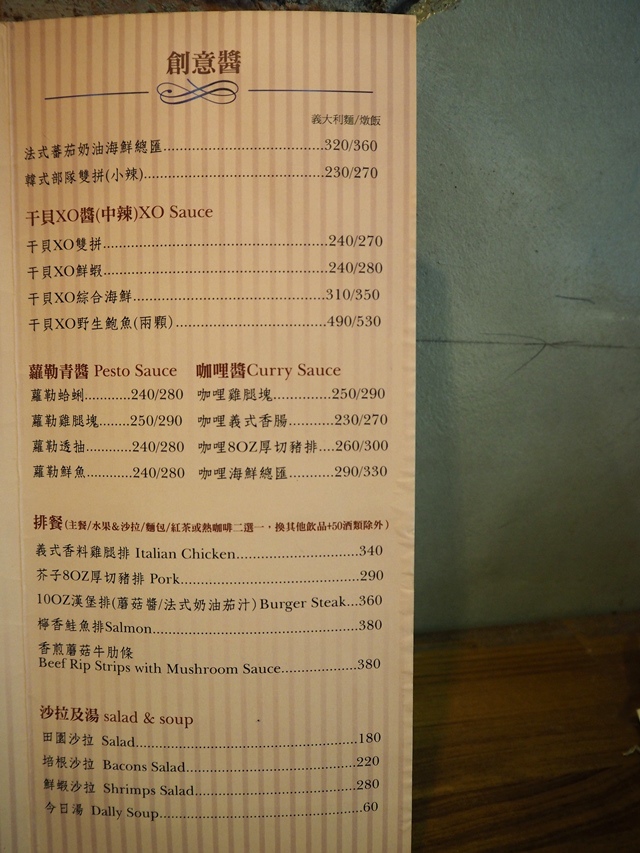 創意醬
義大利麵/燉飯
法式蕃茄奶油海鮮總匯...............................320/360
韓式部隊雙拼(小辣)...................................230/270
干貝XO醬(中辣)XO Sauce
干貝XO雙拼.............................................240/270
干貝XO鮮蝦.............................................240/280
干貝XO綜合海鮮.......................................310/350
干貝XO野生鮑魚(兩顆)..............................490/530
蘿勒青醬 Pesto Sauce 咖哩醬Curry Sauce
蘿勒蛤蜊...........240/280 咖哩雞腿塊.............250/290
蘿勒雞腿塊.......250/290 咖哩義式香腸...........230/270
蘿勒透抽...........240/280 咖哩8OZ厚切豬排....260/300
蘿勒鮮魚...........240/280 咖哩海鮮總匯...........290/330
排餐(主餐/水果&沙拉/麵包/紅茶或熱咖啡二選一，換其他飲品+50酒類除外)
義式香料雞腿排 Italian Chicken.........................340
芥子8OZ厚切豬排 Pork....................................290
10OZ漢堡排(蘑菇醬/法式奶油茄汁)Burger Steak...360
檸香鮭魚排Salmon..........................................380
香煎蘑菇牛肋條
Beef Rip Strips with Mushroom Sauce................380
沙拉及湯 salad & soup
田園沙拉 Salad..............................................180
培根沙拉 Bacons Salad...................................220
鮮蝦沙拉 Shrimps Salad..................................280
今日湯 Dally Soup..........................................60